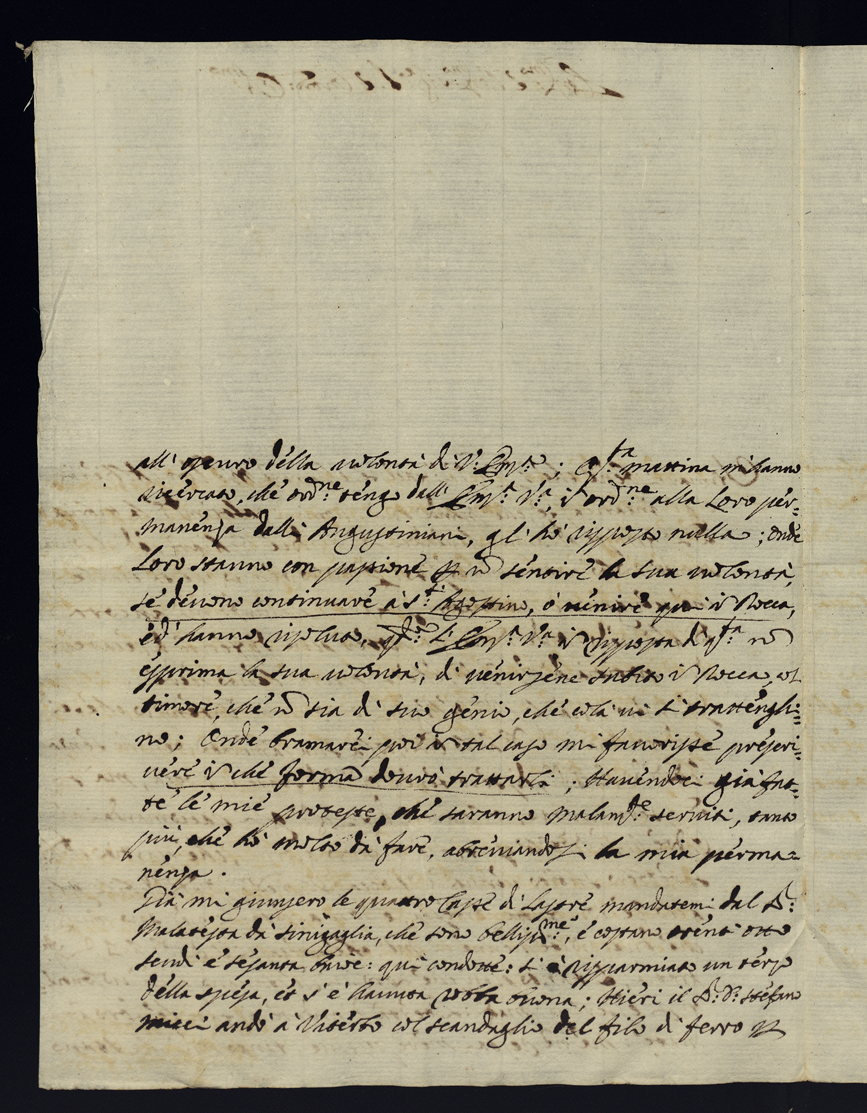 all'oscuro della volontà di V: Em:ª; Q:ta mattina mi hanno
ricercato, che ord:ne tengo dall' Em:ª V:ª, in ord:ne alla loro per=
manenza dalli Augustiniani, gl' hò risposto nulla; onde
loro stanno con passione p nō sentire la sua volontà,
se devono continuare à S:t Agostino, ò venire qui in Rocca,
ed' hanno risoluto, q:do l' Em:ª V:ª in risposta di q:ta nō
esprima la sua volontà, di venirsene subito in Rocca, col
timore, che nō sia di suo genio, che colà vi si trattenghi=
no; Onde bramarei poi in tal caso mi favorisse prescri=
vere in che forma dovrò trattarli; Havendoci già fat=
te le mie proteste, che saranno malam:te serviti, tanto
più, che hò molto da fare, abbreviandosi la mia perma=
nenza.
Già mi giunsero le quattro Casse di Lastre mandatemi dal S:r
Malatesta da Sinigaglia, che sono belliss:me, e costano trent'otto
scudi e sesanta, bwe: qui condotte: si è rispparmiato un terzo
della spesa, et s' è havuta robba buona; Hieri il S:r D: Stefano
Micci andò à Viterbo col scandaglio del filo di ferro p